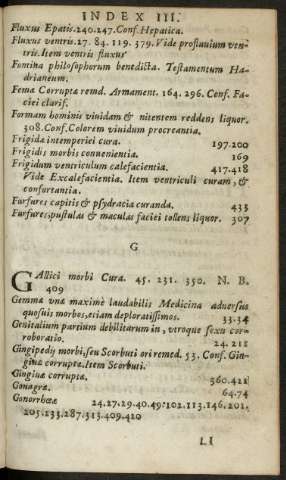 INDEX III.
Fluxus Epatis. 240. 247. Conf. Hepatica.
Fluxus ventris. 27. 84. 119. 379. Vide profluvium ven-
tris. Item ventris fluxus
Fomina philosophorum benedicta. Testamentum Ha-
drianeum.
Fema Corrupta remd. Armament. 164. 296. Conf. Fa-
ciei clarif.
Formam hominis vividam & nitentem reddens liquor.
308. Conf. Colorem vividum procreantia.
Frigida intemperiei cura. 197. 200
Frigidis morbis convenientia. 169
Frigidum ventriculum calefacientia. 417. 418
Vide Excalefacientia. Item ventriculi curam, &
confortantia.
Furfures capitis & psydracia curanda. 435
Furfures, pustulas & maculas faciei tollens liquor. 307
G
GAllici morbi Cura. 45. 231. 350. N. B.
409
Gemma una maximè laudabilis Medicina adversus
quosuis morbos, etiam deploratissimos. 33. 34
Genitalium partium debilitatum in, utroque sexu cor-
roboratio. 24. 218
Gingipedij morbi, seu Scorbuti ori remed. 53. Conf. Gin-
givæ corruptæ. Item Scorbuti.
Gingivæ corruptæ. 360. 421
Gonagra. 64. 74
Gonorrhœæ 24. 27. 29. 40. 49. 102. 113. 146. 201.
205. 233. 287. 313. 409. 410
Ll